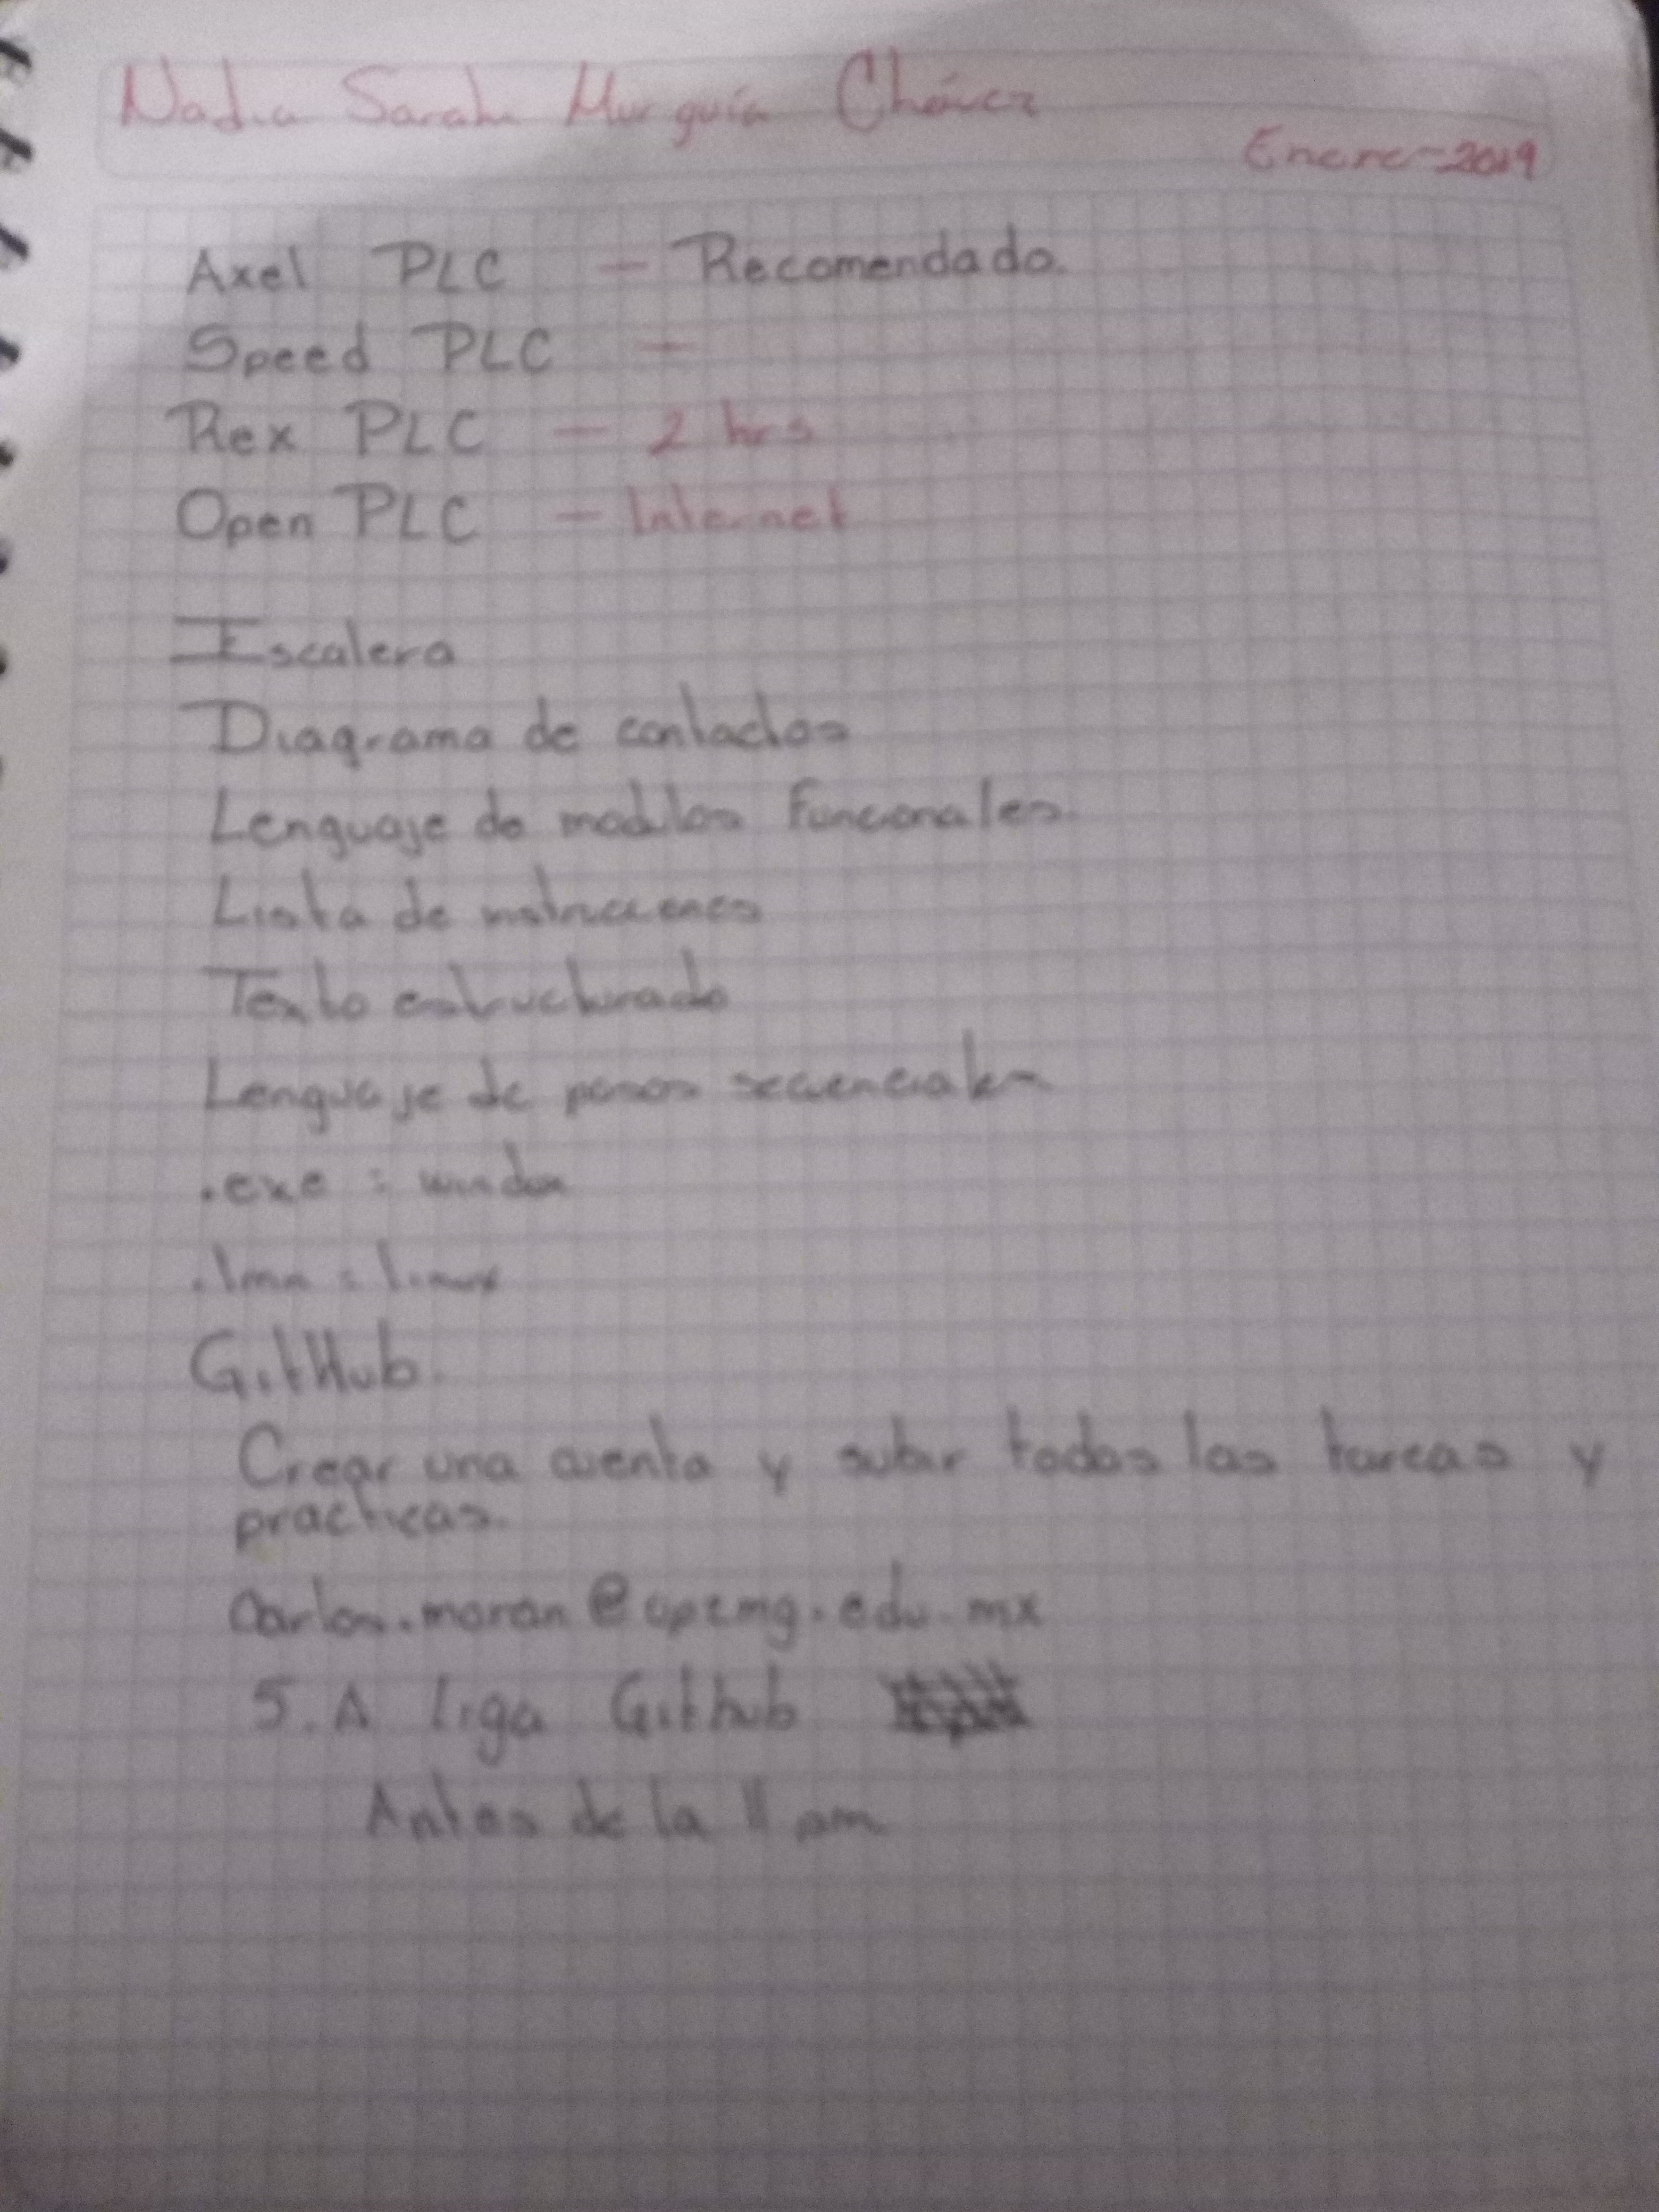 Nadia Sarahi Murguía Chávez
Enero-2019
Axel PLC — Recomendado.
Speed PLC —
Rex PLC — 2 hrs
Open PLC — Internet
Escalera
Diagrama de contactos
Lenguaje de modulos funcionales.
Lista de instrucciones
Texto estructurado
Lenguaje de pasos secuenciales
.exe = 
= linux
GitHub.
Crear una cuenta y subir todos las tareas y
practicas.
5.A liga Github
Antes de la 11 am